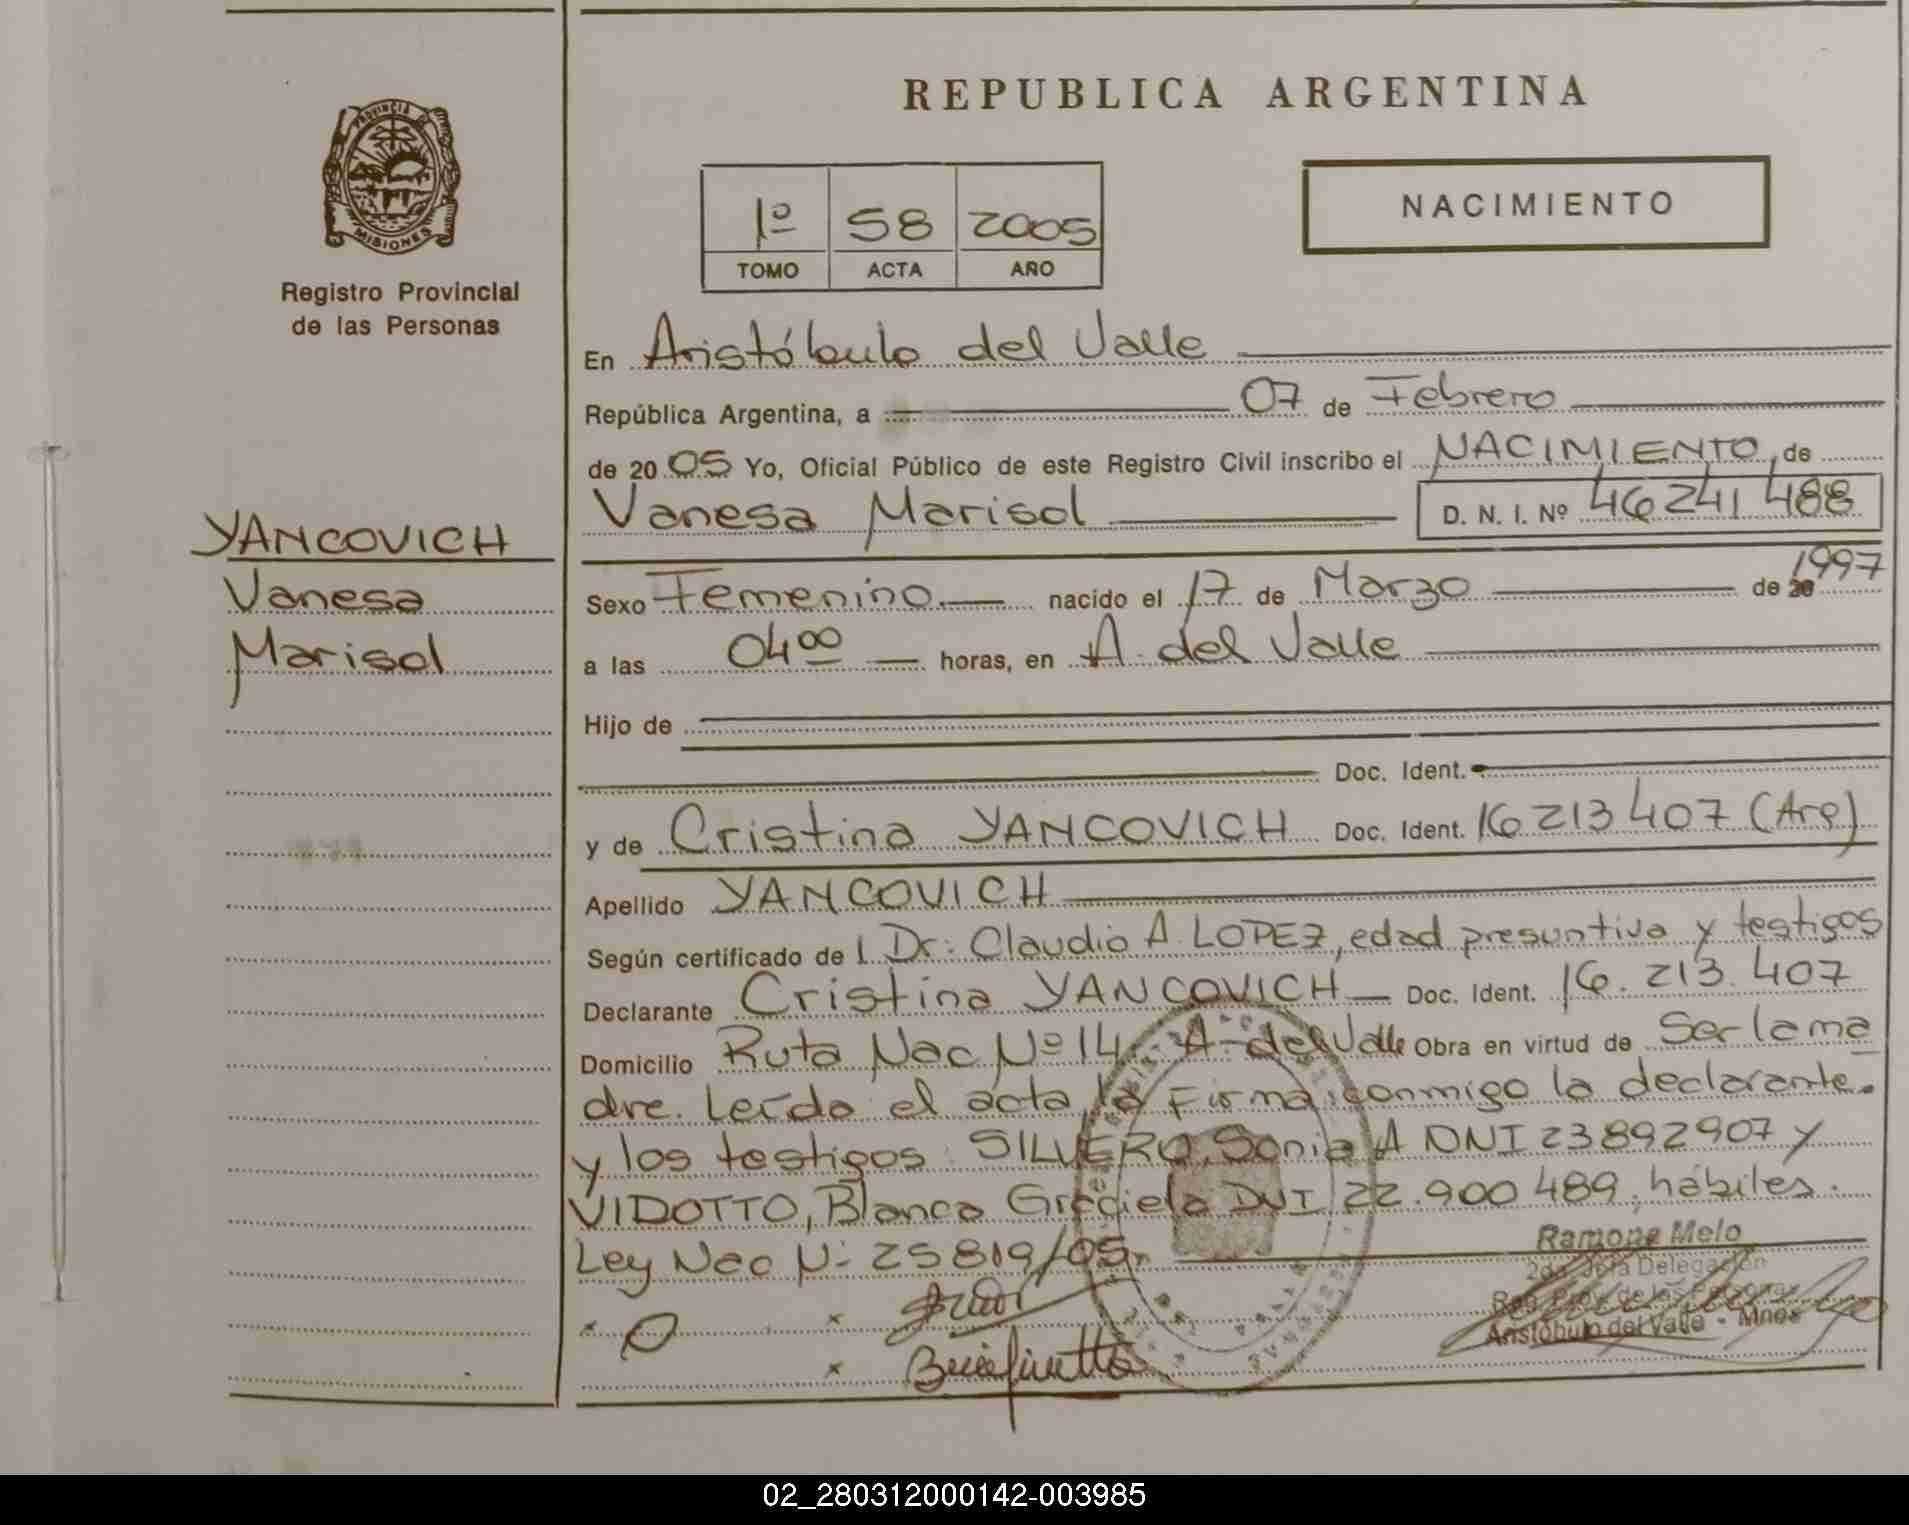 REPUBLICA ARGENTINA
PROVINCIA DE
MISIONES
Registro Provincial
de las Personas
1º 58 2005
TOMO ACTA AÑO
NACIMIENTO
YANCOVICH
Vanesa
Marisol
En Aristóbulo del Valle
República Argentina, a 07 de Febrero
de 2005 Yo, Oficial Público de este Registro Civil inscribo el NACIMIENTO, de
Vanesa Marisol D. N. I. Nº 46241488
Sexo Femenino nacido el 17 de Marzo de 20 1997
a las 04 00 horas, en A. del Valle
Hijo de
Doc. Ident.
y de Cristina YANCOVICH Doc. Ident. 16213407 (Arg)
Apellido YANCOVICH
Según certificado de l Dr: Claudio A. LOPEZ, edad presuntiva y testigos
Declarante Cristina YANCOVICH Doc. Ident. 16.213.407
Domicilio Ruta Nac Nº 14 A. del Valle Obra en virtud de Ser la ma
dre. Leída el acta, la Firma conmigo la declarante.
y los testigos: SILVERO, Sonia A DNI 23892907 y
VIDOTTO, Blanca Graciela DNI 22.900489, hábiles.
Ley Nac N: 25819/05.
Ramona Melo
2da. Jefa Delegación
Reg. Prov. de las Personas
Aristóbulo del Valle - Mnes
02_280312000142-003985